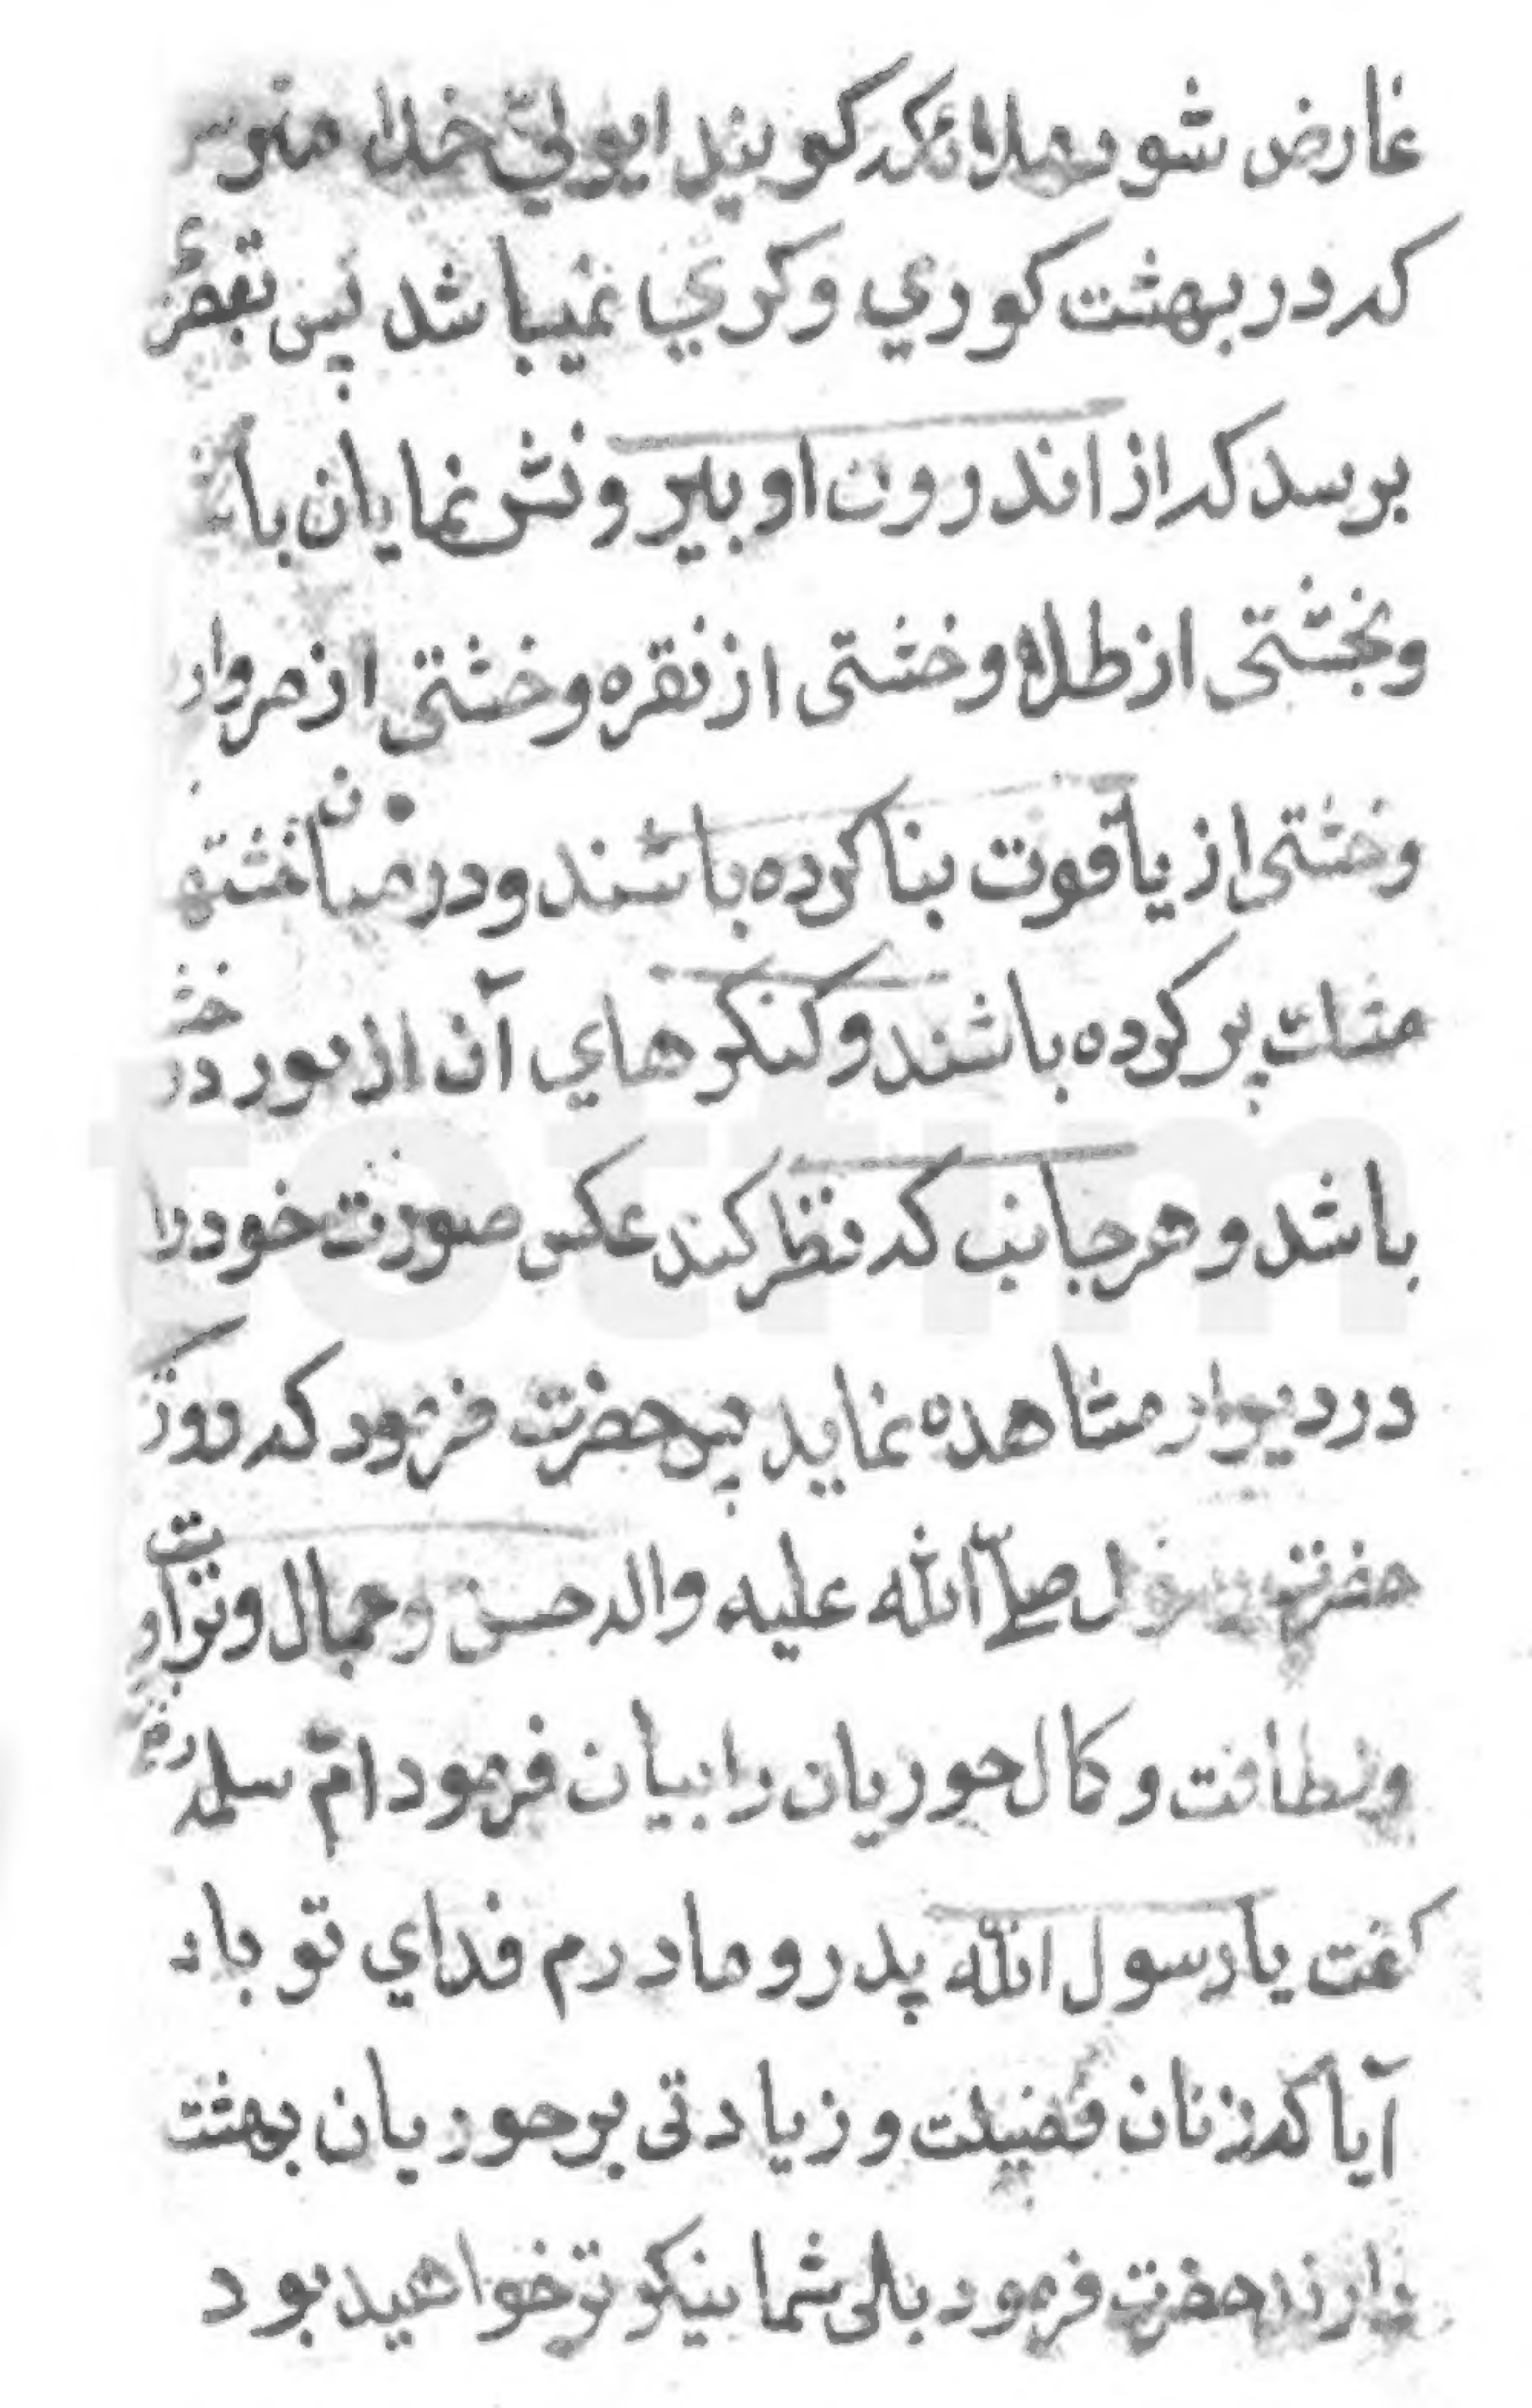 عارض شود ملائکه کویند ایولیّ خدا مترس
که در بهشت کوري وکري نمیباشد پس بقصرئ
برسد که از اندرون او بیرونش نمایان با
وبخشتی از طلا وخشتی از نقره وخشتی از مروار
وخشتی از یاقوت بنا کرده باشند ودر میان خشتها
مشک پر کرده باشند وکنکرهاي آن از نور در
باشد وهر جانب که نظر کند عکس صورت خود را
در دیوار مشاهده نماید پس حضرت فرمود که روز
حضرت رسول صلّی الله علیه واله حسن وجمال وتراوت
ولطافت وکمال حوریان را بیان فرمود امّ سلمه
کفت یا رسول الله پدر ومادرم فداي تو باد
آیا که زنان فضیلت وزیادتی بر حوریان بهشت
دارند حضرت فرمود بلی شما نیکوتر خواهید بود